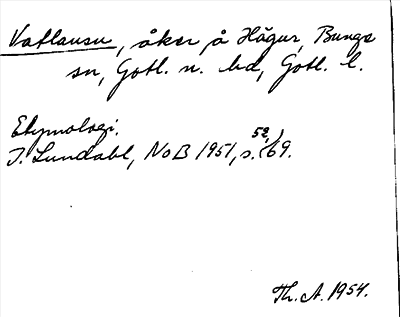 Vatlausu, åker på Hägur, Bunge
sn, Gotl. n. hd, Gotl. l.
Etymologi.
I. Lundahl, NoB 1951, s. (52,) 69.
Th. A. 1954.